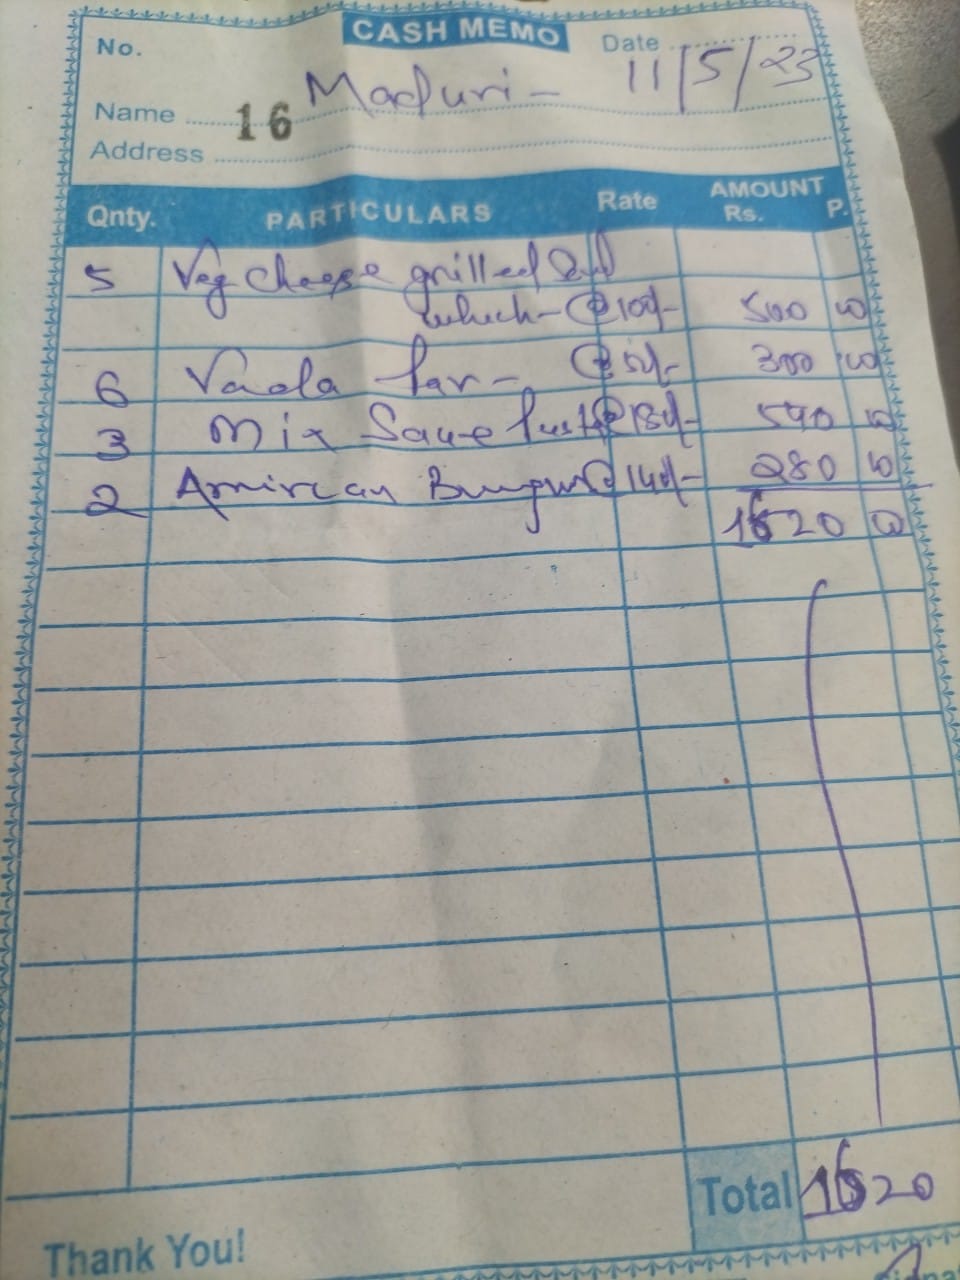 CASH MEMO
No. Date 11/5/23
Name 16 Maduri -
Address
Qnty. PARTICULARS Rate AMOUNT Rs. P.
5 Veg cheese grilled Sand
which - @ 100/- 500 00
6 Vada Pav - @ 50/- 300 00
3 Mix Sauce @ 180/- 540 00
2 @ 140/- 280 00
1620 00
Total 1620
Thank You!